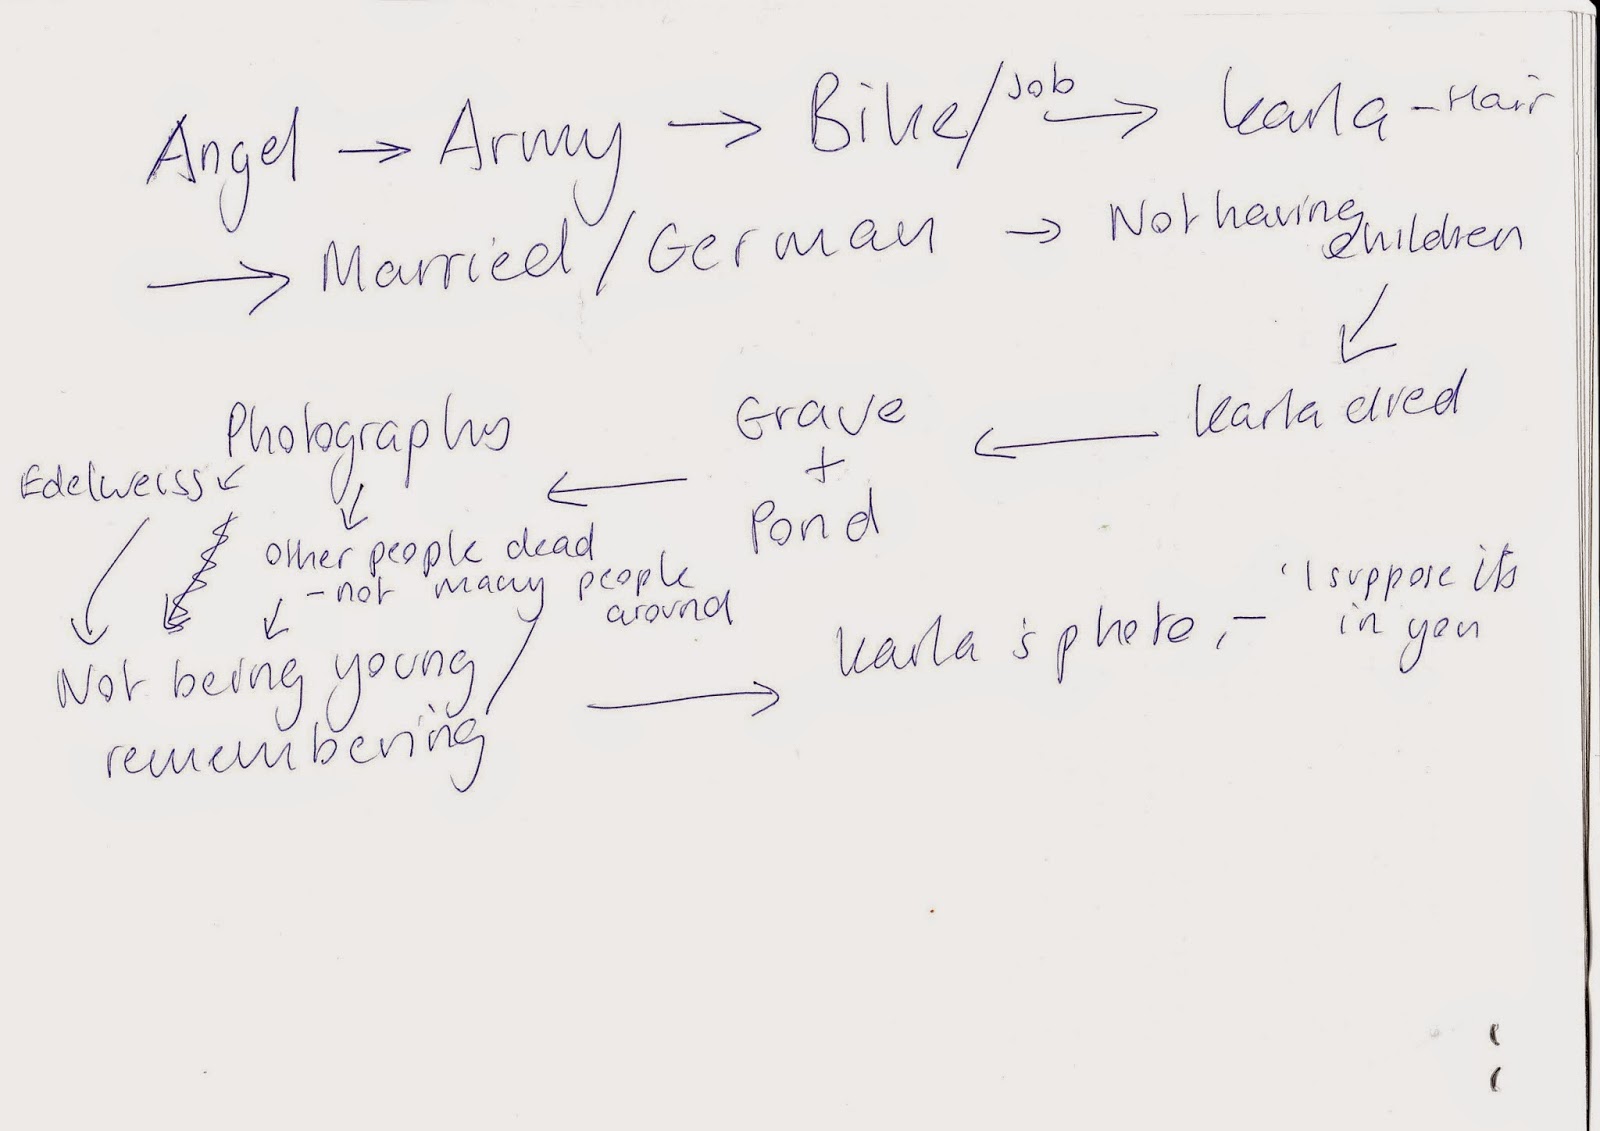 Angel → Army → Bike/Job → Karla - Hair
→ Married / German → Not having
children
Karla died
Grave
+
Pond
←
Photographs
Edelweiss
other people dead
- not many people
around
Not being young
remembering
→ Karla's photo, - 'I suppose its
in you